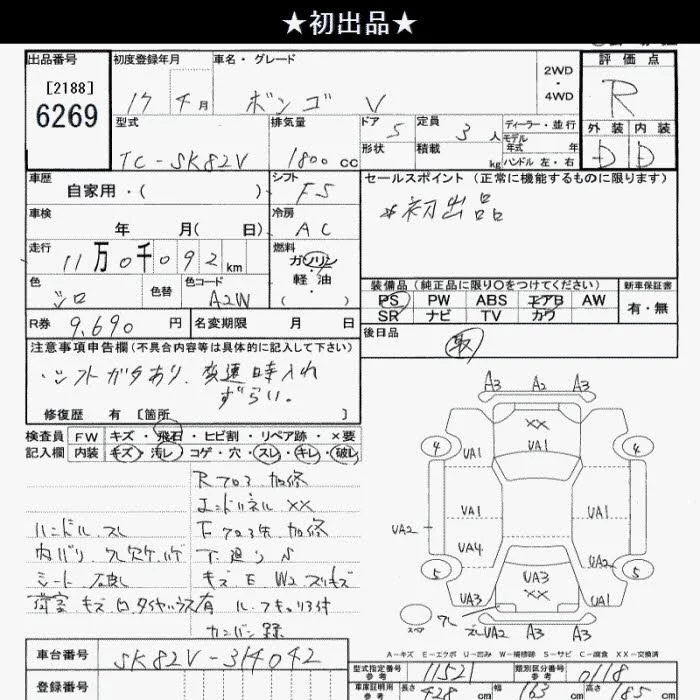 ★初出品★
出品番号 初度登録年月 車名・グレード 2WD・4WD 評価点
[2188] 6269 17年 月 ボンゴ V R
型式 排気量 ドア 5 定員 3人 ディーラー・並行 外装 内装
形状 積載 kg モデル年式 年 ハンドル 左・右
TC-SK82V 1800cc D D
車歴 自家用・( ) シフト F5 セールスポイント (正常に機能するものに限ります)
車検 年 月( 日) 冷房 AC *初出品
走行 11万0千092km 燃料 ガソリン・軽油・( )
色 シロ 色替 色コード A2W
装備品 (純正品に限り○をつけてください) 新車保証書
PS PW ABS エアB AW 有・無
SR ナビ TV カワ
R券 9,690円 名変期限 月 日 後日品
取
注意事項申告欄 (不具合内容等は具体的に記入して下さい)
・シフトガタあり、変速時入れ
ずらい。
修復歴 有 [箇所 ]
検査員 FW キズ・飛石・ヒビ割・リペア跡・×要
記入欄 内装 キズ・汚レ・コゲ・穴・スレ・キレ・破レ
Rフロア加修
エンドパネル XX
ハンドル スレ Fフロア先 加修
内バリ 下廻り
シート 破レ キズ E W2
荷室 キズ 凹 有
カンバン跡
A3 A2 A3
XX
4 UA1 VA1 4
VA1 UA1
UA2 VA4 UA2
5 VA3 5
VA3 XX UA1
スペア UA2 A3 A3
A-キズ E-エクボ U-凹み W-補修跡 S-サビ C-腐食 XX-交換済
車台番号 SK82V-314042
登録番号
型式指定番号 参考 11521 類別区分番号 参考 0118
車庫証明用 参考 長さ 428cm 幅 163cm 高さ 185cm